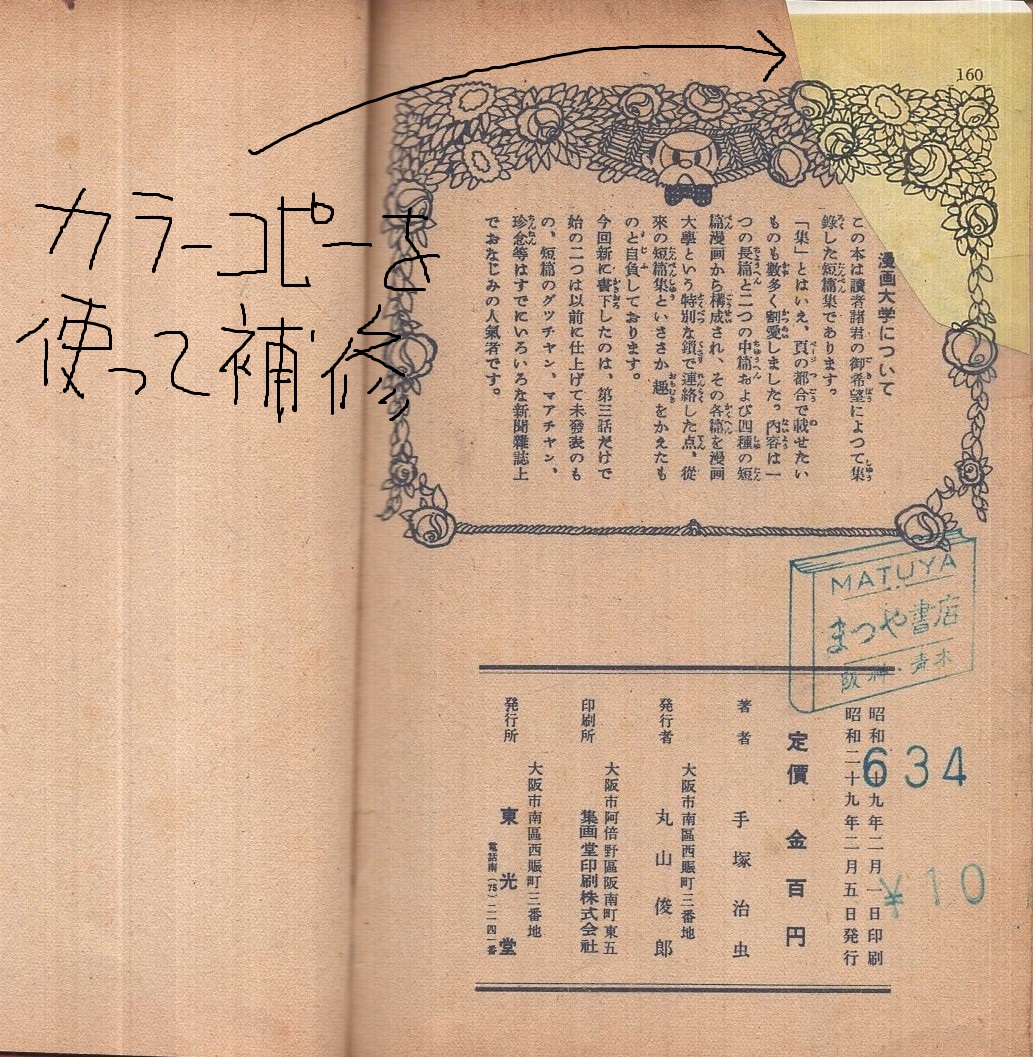 160
カラーコピーを
使って補修
漫画大学について
この本は讀者諸君の御希望によつて集
錄した短篇集であります。
「集」とはいえ、頁の都合で載せたい
ものも數多く割愛しました。内容は一
つの長篇と二つの中篇および四種の短
篇漫画から構成され、その各篇を漫画
大學という特別な鎖で連絡した点、從
來の短篇集といささか趣をかえたも
のと自負しております。
今回新に書下したのは、第三話だけで
始の二つは以前に仕上げて未發表のも
の、短篇のグッチヤン、マアチヤン、
珍念等はすでにいろいろな新聞雜誌上
でおなじみの人氣者です。
MATUYA
まつや書店
阪神・青木
634
¥10
昭和二十九年二月一日印刷
昭和二十九年二月五日発行
定價 金百円
著者 手塚治虫
大阪市南區西賑町三番地
発行者 丸山俊郎
大阪市阿倍野區阪南町東五
印刷所 集画堂印刷株式会社
大阪市南區西賑町三番地
発行所 東光堂
電話南(75)二一四一番